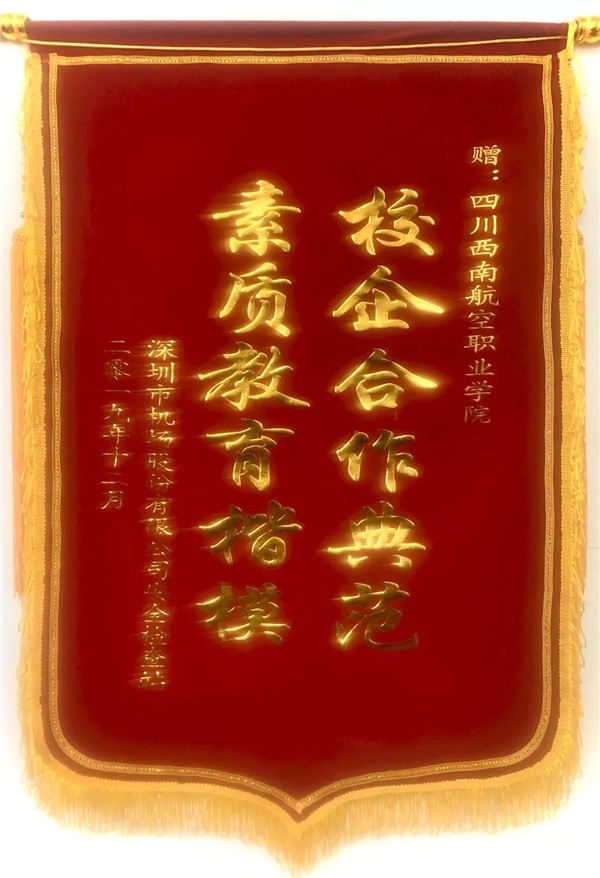 赠：四川西南航空职业学院
校企合作典范
素质教育楷模
深圳市机场股份有限公司安全检查站
二零一九年十二月